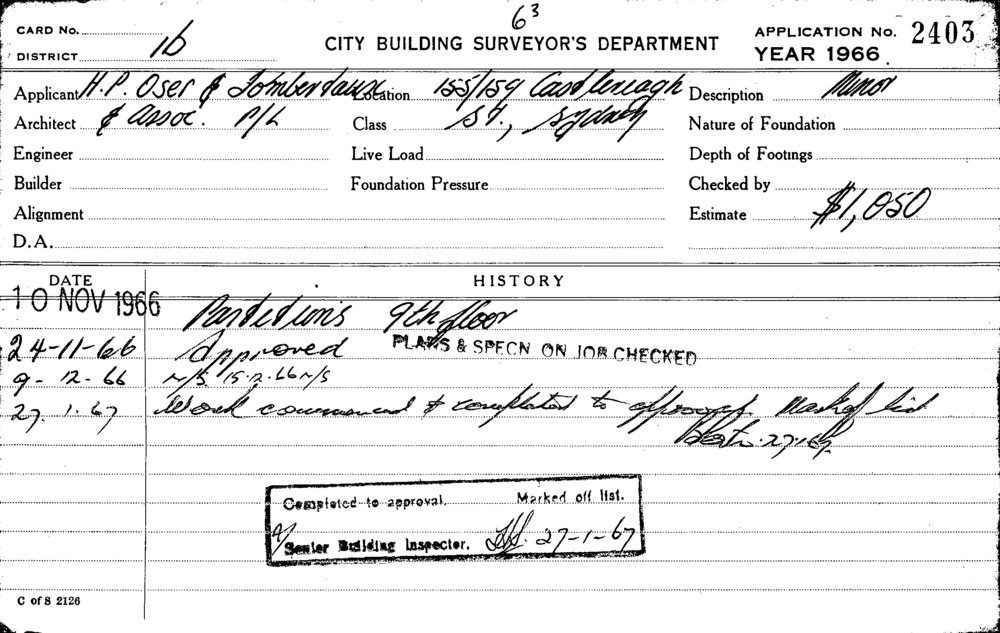 63
CARD No.
DISTRICT 1b
CITY BUILDING SURVEYOR'S DEPARTMENT
APPLICATION No. 2403
YEAR 1966
Applicant H.P. Oser & Fomberteaux Location 155/159 Castlereagh Description Minor
Architect & Assoc. P/L Class St., Sydney Nature of Foundation
Engineer Live Load Depth of Footings
Builder Foundation Pressure Checked by
Alignment Estimate $1,050
D.A.
DATE HISTORY
10 NOV 1966 Partitions 9th floor
24-11-66 Approved PLANS & SPECN ON JOB CHECKED
9-12-66 N/S 15.12.66 N/S
27.1.67 Work commenced & completed to approval. Mark off list
27.1.67
Completed to approval. Marked off list.
Senior Building Inspector. 27-1-67
C of S 2126